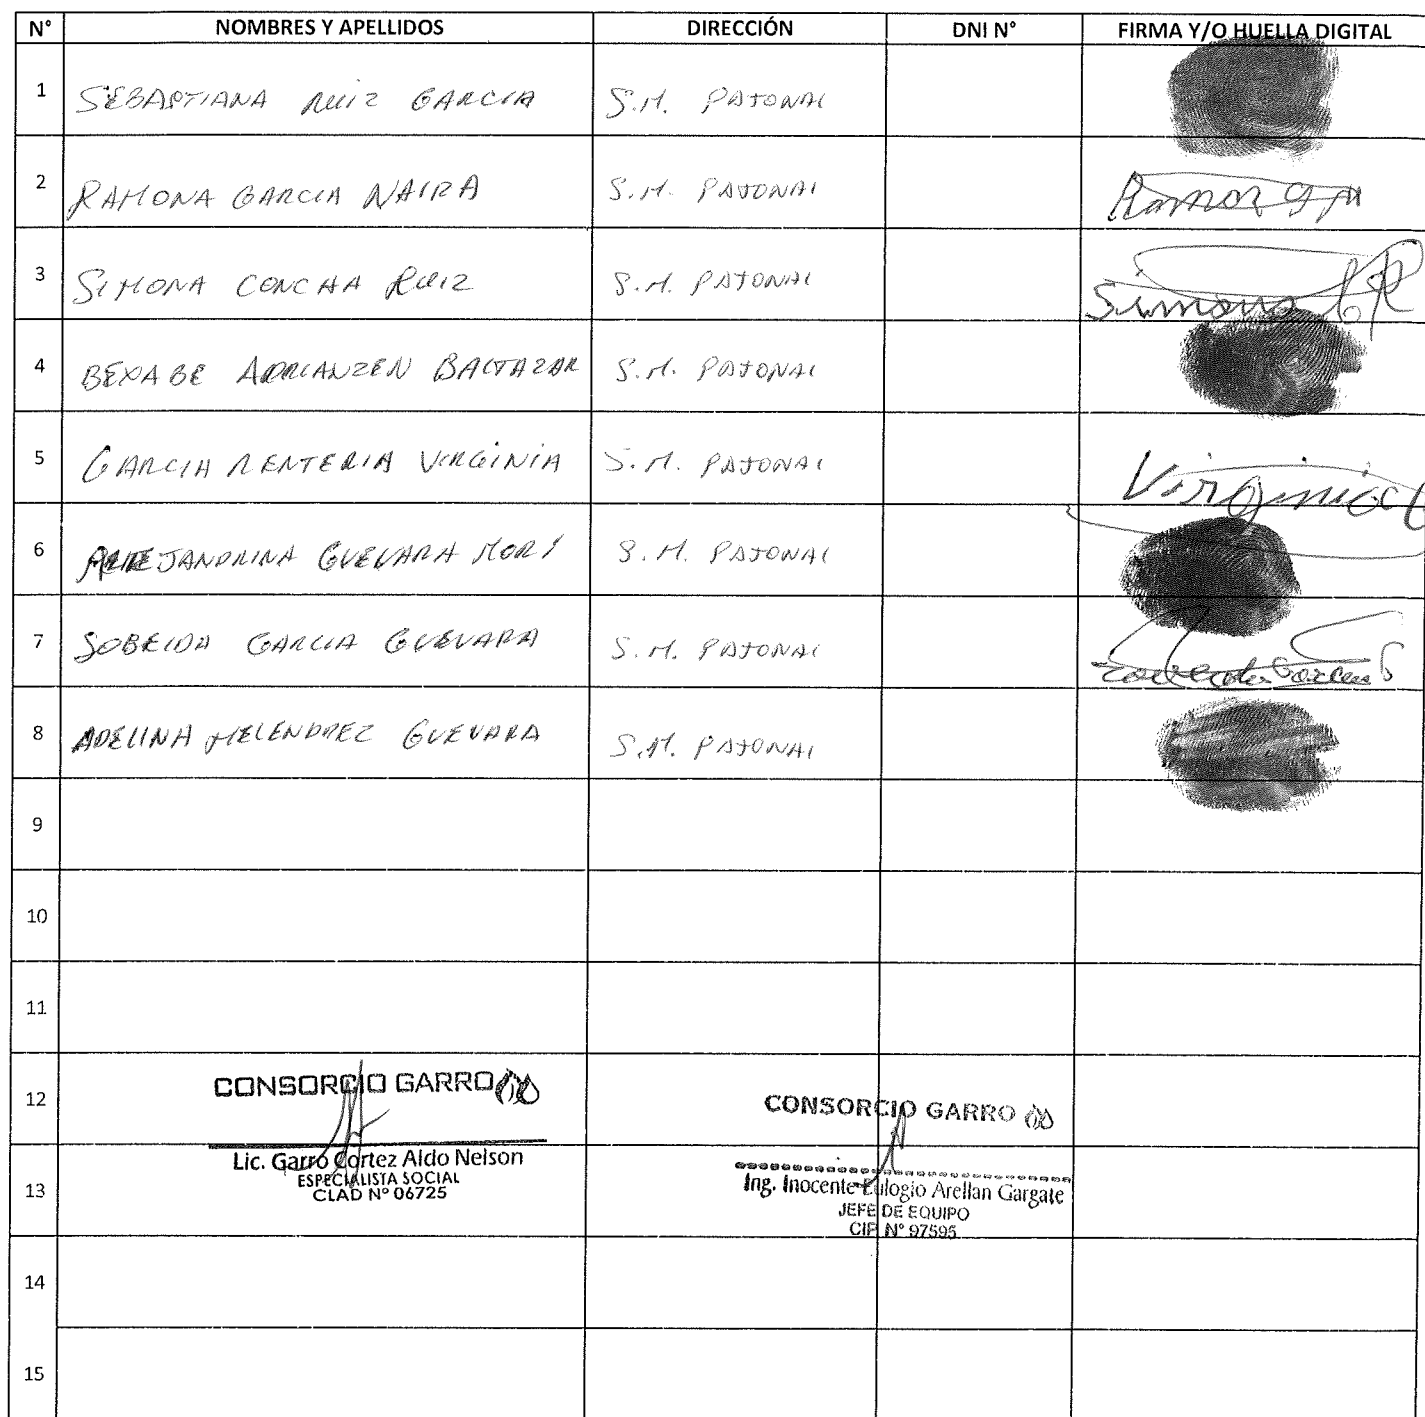 N° NOMBRES Y APELLIDOS DIRECCIÓN DNI N° FIRMA Y/O HUELLA DIGITAL
1 SEBASTIANA RUIZ GARCIA S.M. PAJONAL
2 RAMONA GARCIA NAIRA S.M. PAJONAL Ramon
3 SIMONA CONCHA RUIZ S.M. PAJONAL Simona CR
4 BEXABE ADRIANZEN BALTAZAR S.M. PAJONAL
5 GARCIA RENTERIA VIRGINIA S.M. PAJONAL Virginia
6 ALEJANDRINA GUEVARA MORI S.M. PAJONAL
7 SOBEIDA GARCIA GUEVARA S.M. PAJONAL
8 ADELINA MELENDREZ GUEVARA S.M. PAJONAL
9
10
11
12
CONSORCIO GARRO
Lic. Garro Cortez Aldo Nelson
ESPECIALISTA SOCIAL
CLAD N° 06725
CONSORCIO GARRO
Ing. Inocente Eulogio Arellan Gargate
JEFE DE EQUIPO
CIP N° 97595
13
14
15